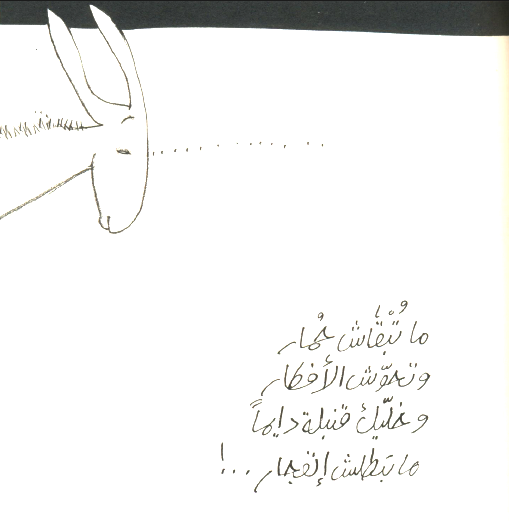 ما تُبْقاش حُمار
وتحوّش الأفكار
وخلّيك قنبلة دايماً
ما تبَطلش إنفجار ...!